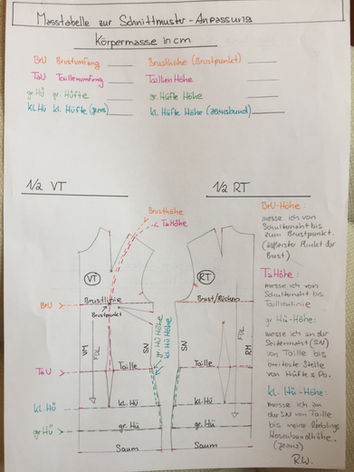 Masstabelle zur Schnittmuster-Anpassung
Körpermasse in cm
BrU Brustumfang
Brusthöhe (Brustpunkt)
TaU Taillenumfang
Taillen Höhe
gr. Hü gr. Hüfte
gr. Hüfte Höhe
kl. Hü kl. Hüfte (Jeans)
kl. Hüfte Höhe (Jeansbund)
1/2 VT
1/2 RT
Brusthöhe
TaHöhe
VT
RT
BrU
Brustlinie
Brustpunkt
Brust/Rücken
gr Hü Höhe
kl. Hü Höhe
VM
FDL
SN
SN
FDL
RM
TaU
Taille
Taille
kl. Hü
kl. Hü
kl. Hü
gr. Hü
gr. Hü
gr. Hü
Saum
Saum
BrU-Höhe:
messe ich von
Schulternaht bis
zum Brustpunkt.
(äußerster Punkt der
Brust)
TaHöhe:
messe ich von
Schulternaht bis
Taillenlinie
gr Hü-Höhe:
messe ich an der
Seitennaht (SN)
von Taille bis
breiteste Stelle
von Hüfte & Po.
kl. Hü-Höhe:
messe ich an
der SN von Taille
bis meine Lieblings
Hosenbundhöhe.
(Jeans)
R.W.